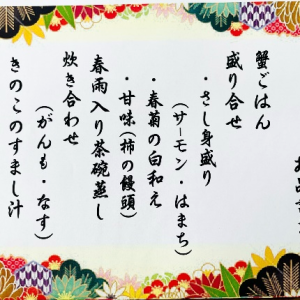 蟹ごはん
盛り合せ
・さし身盛り
(サーモン・はまち)
・春菊の白和え
・甘味(柿の饅頭)
春雨入り茶碗蒸し
炊き合わせ
(がんも・なす)
きのこのすまし汁